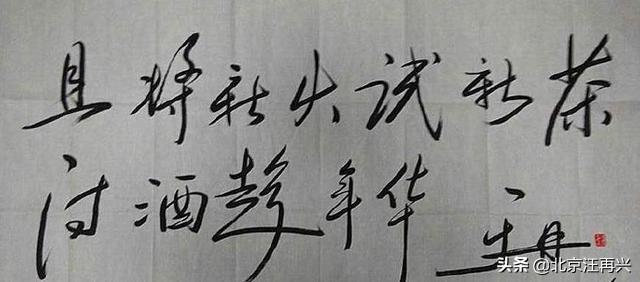 且将新火试新茶
诗酒趁年华
头条 @北京汪再兴